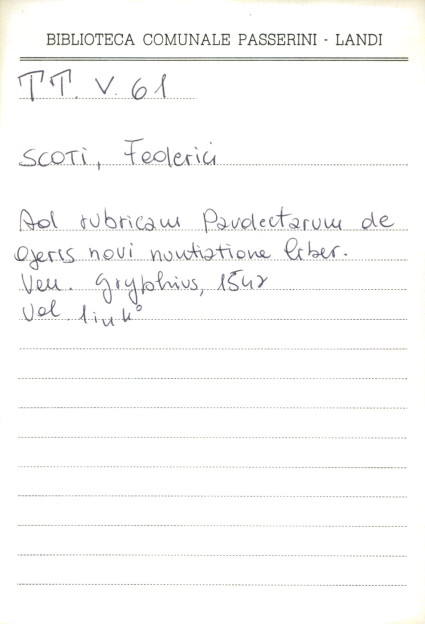 BIBLIOTECA COMUNALE PASSERINI - LANDI
TT. V. 61
SCOTI, Federici
Ad rubricam Pandectarum de
operis novi nuntiatione liber.
Ven. Gryphius, 1542
Vol. 1 in 4°